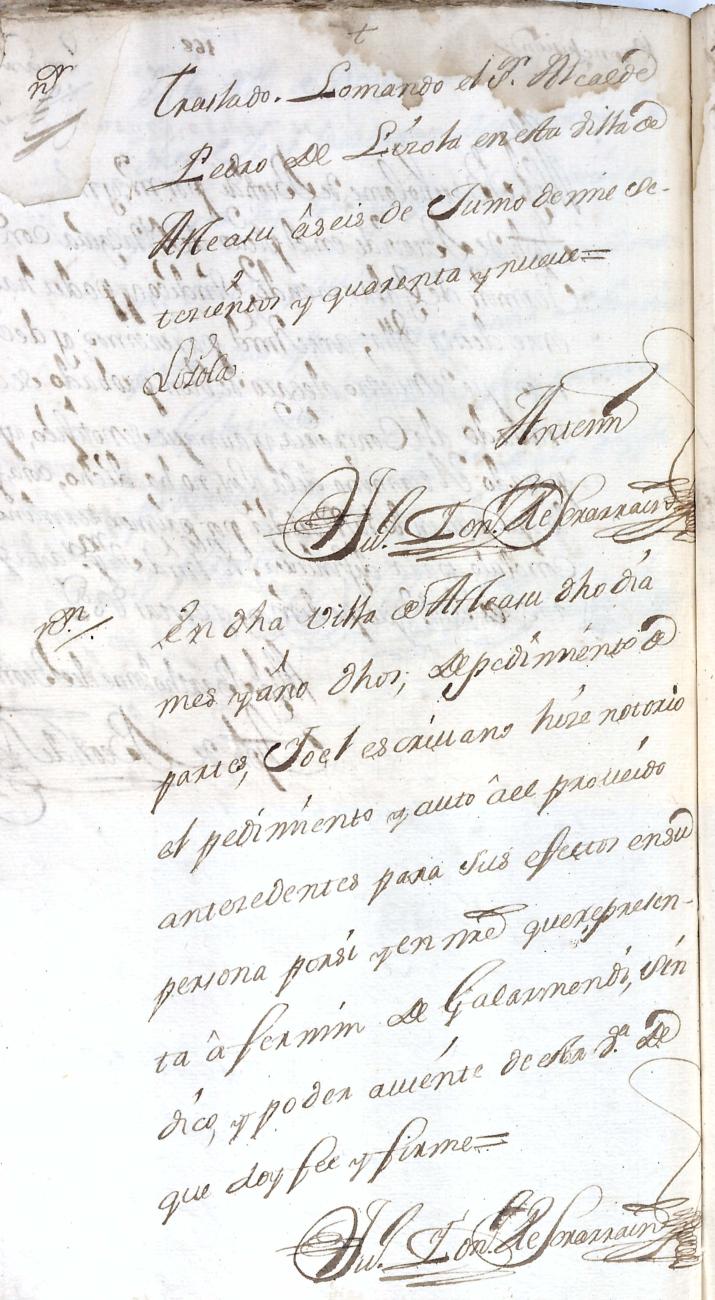 Traslado. Lomando el S.r Alcalde
Pedro de Lizola en esta Villa de
Alleasu â seis de Junio de mil se-
tecientos y quarenta y nueue=
Lizola
Antemi
Jul. Ign. de Yrarrain
n.on
En dha Villa de Alleasu dho dia
mes y año dhos, de pedimiento de
partes, Yo el escriuano hize notorio
el pedimiento y auto â el proueido
antezedentes para sus efectos en su
persona por si y en nre que represen-
ta â fermin de Galarmendi, Sin
dico, y poder auiente de esta V.a de
que doy fee y firme=
Jul. Ign. de Yrarrain